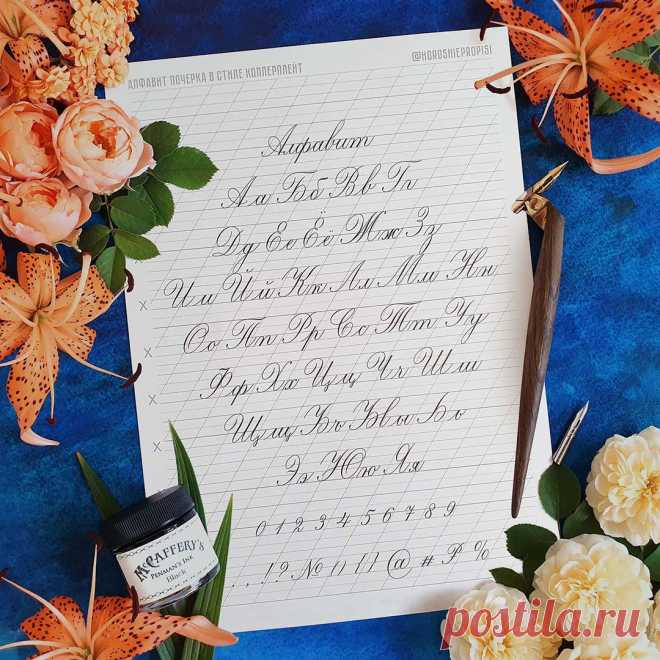 АЛФАВИТ ПОЧЕРКА В СТИЛЕ КОППЕРПЛЕЙТ
@HOROSHIEPROPISI
Алфавит
Аа Бб Вв Гг
Дд Ее Ёё Жж Зз
Ии Йй Кк Лл Мм Нн
Оо Пп Рр Сс Тт Уу
Фф Хх Цц Чч Шш
Щщ Ъъ Ыы Ьь
Ээ Юю Яя
0 1 2 3 4 5 6 7 8 9
. , ! ? № () {} @ # ₽ %
McCAFFERY'S
PENMAN'S INK
Black
postila.ru